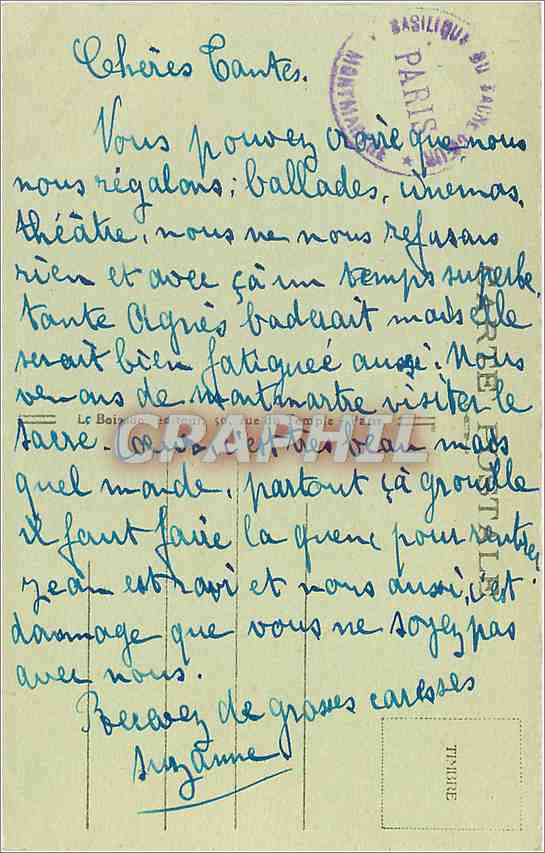 Chères Tantes.
BASILIQUE DU SACRÉ CŒUR
PARIS
MONTMARTRE
Vous pouvez croire que nous
nous régalons; ballades, cinemas,
théâtre, nous ne nous refusons
rien et avec çà un temps superbe.
tante Agnès baderait mais elle
serait bien fatigueé aussi. Nous
venons de montmartre visiter le
sacre-Cœur c'est très beau mais
quel monde, partout çà grouille
il faut faire la queue pour rentrer
Jean est ravi et nous aussi, c'est
dommage que vous ne soyez pas
avec nous.
Recevez de grosses caresses
Suzanne
CARTE POSTALE
rue du Temple, Paris
GRAPHIL
TIMBRE